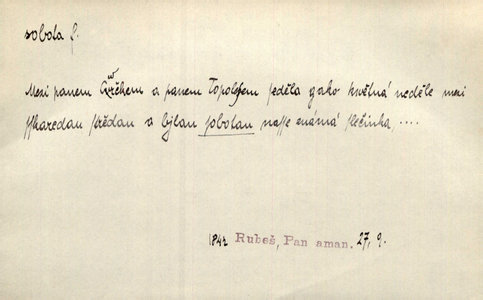 sobota f.
Mezi panem Cwrčkem a panem Topolem seděla gako květná neděle mezi
sskaredau středau a bjlau sobotau nasse známá slečinka, ....
184z Rubeš, Pan aman. 27, 9.